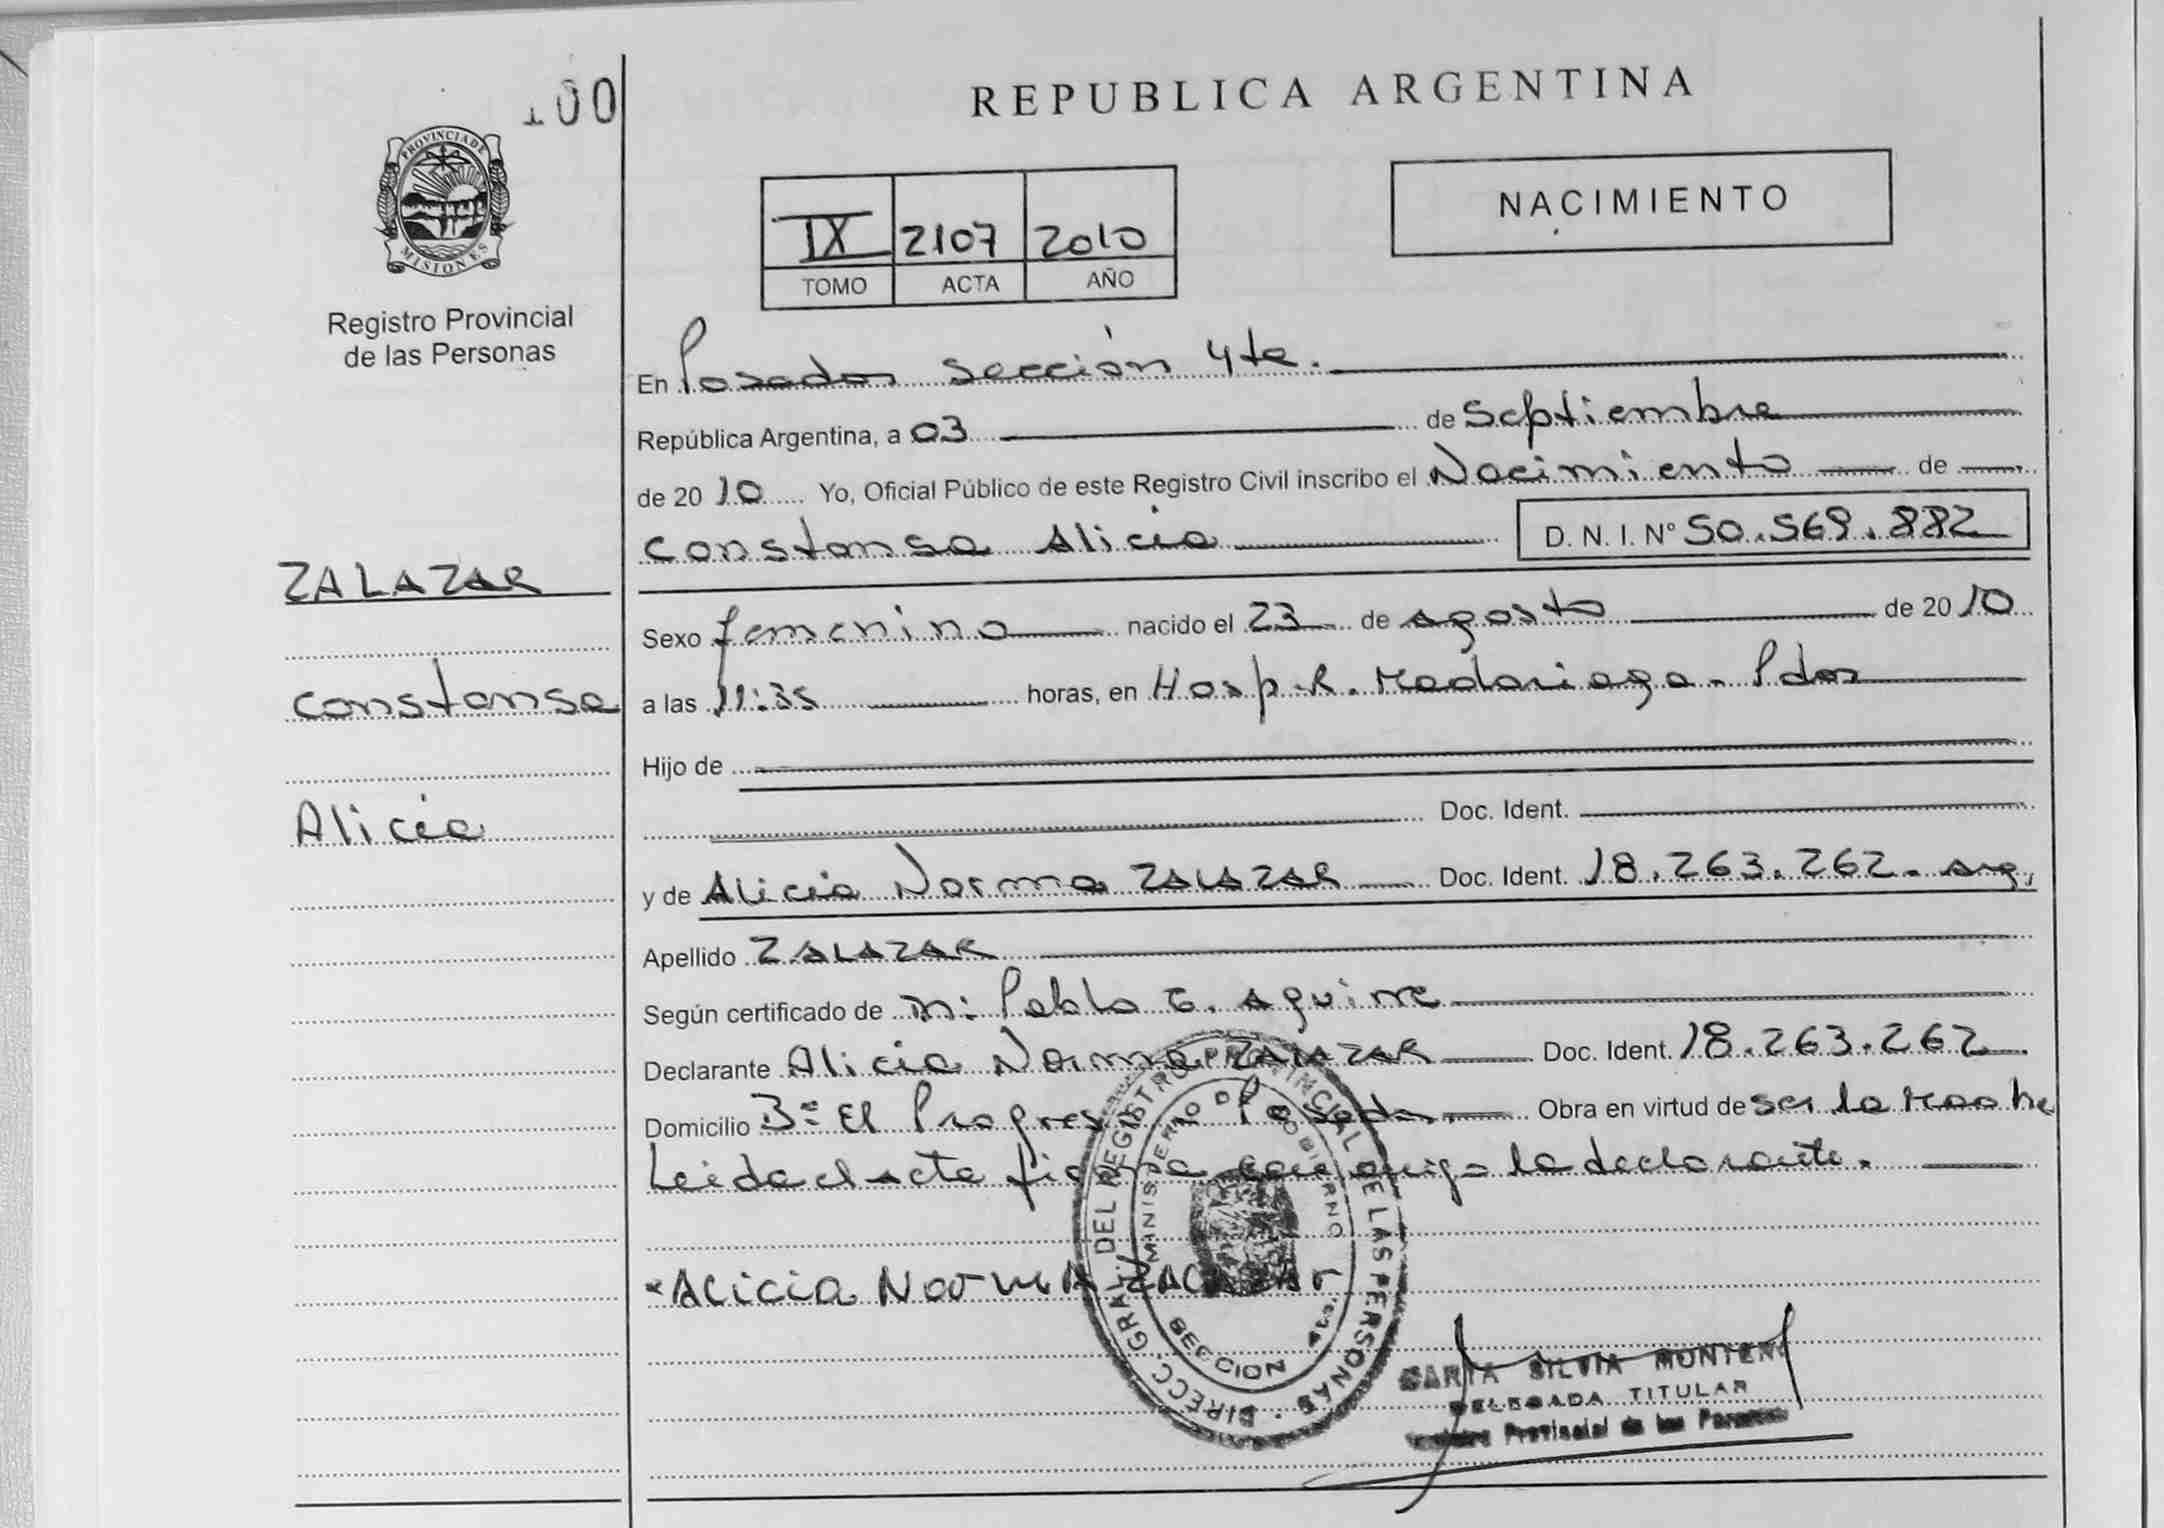 100
REPUBLICA ARGENTINA
PROVINCIA DE
MISIONES
Registro Provincial
de las Personas
IX 2107 2010
TOMO ACTA AÑO
NACIMIENTO
En Posadas sección 4ta.
República Argentina, a 03 de Septiembre
de 2010 Yo, Oficial Público de este Registro Civil inscribo el Nacimiento de
Constansa Alicia D. N. I. Nº 50.569.882
ZALAZAR
Constansa
Alicia
Sexo femenino nacido el 23 de agosto de 2010
a las 11:35 horas, en Hosp. R. Madariaga - Pdas
Hijo de
Doc. Ident.
y de Alicia Norma ZALAZAR Doc. Ident. 18.263.262. arg.
Apellido ZALAZAR
Según certificado de Pablo E. Aguirre
Declarante Alicia Norma ZALAZAR Doc. Ident. 18.263.262
Domicilio Bº El Progreso Posadas Obra en virtud de ser la Madre
Leida el acta firma conmigo la declarante.
Alicia Norma ZALAZAR
DIRECC. GRAL. DEL REGISTRO PROVINCIAL DE LAS PERSONAS
MINISTERIO DE GOBIERNO
SECCION 4ta.
SILVIA
DELEGADA TITULAR
Provincial de las Personas